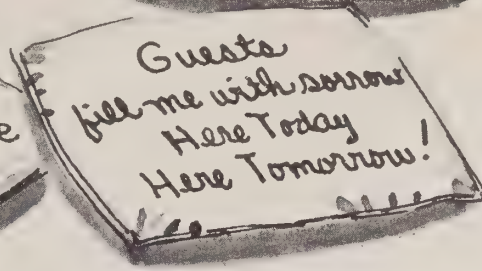 Guests
fill me with sorrow
Here Today
Here Tomorrow!
e